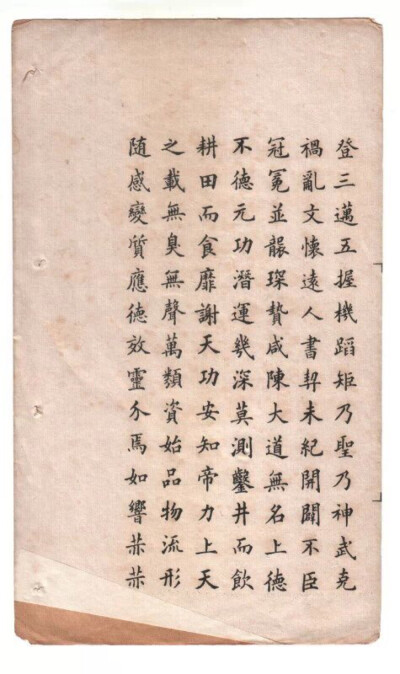 登三邁五握機蹈矩乃聖乃神武克
禍亂文懷遠人書契未紀開闢不臣
冠冕並襲琛贄咸陳大道無名上德
不德元功潛運幾深莫測鑿井而飲
耕田而食靡謝天功安知帝力上天
之載無臭無聲萬類資始品物流形
随感變質應德效靈介焉如響茱茱